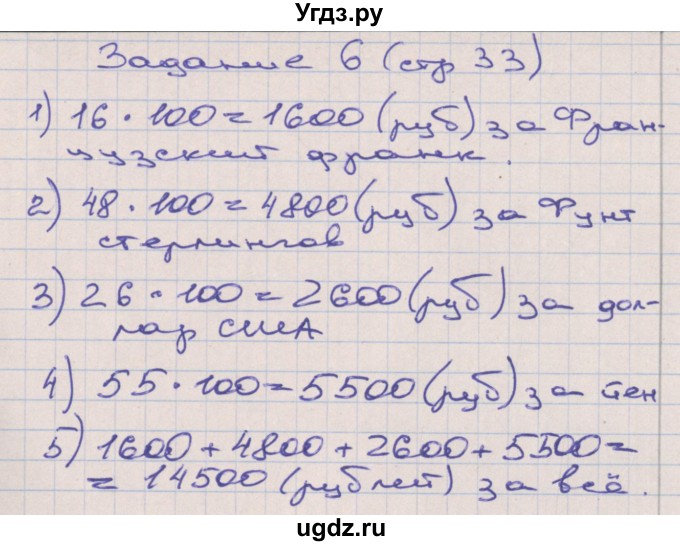 Угдз.ру
Задание 6 (стр 33)
1) 16 · 100 = 1600 (руб) за Фран-
цузский франк.
2) 48 · 100 = 4800 (руб) за Фунт
стерлингов
3) 26 · 100 = 2600 (руб) за дол-
лар США
4) 55 · 100 = 5500 (руб) за йен
5) 1600 + 4800 + 2600 + 5500 =
= 14500 (рублей) за всё.
ugdz.ru